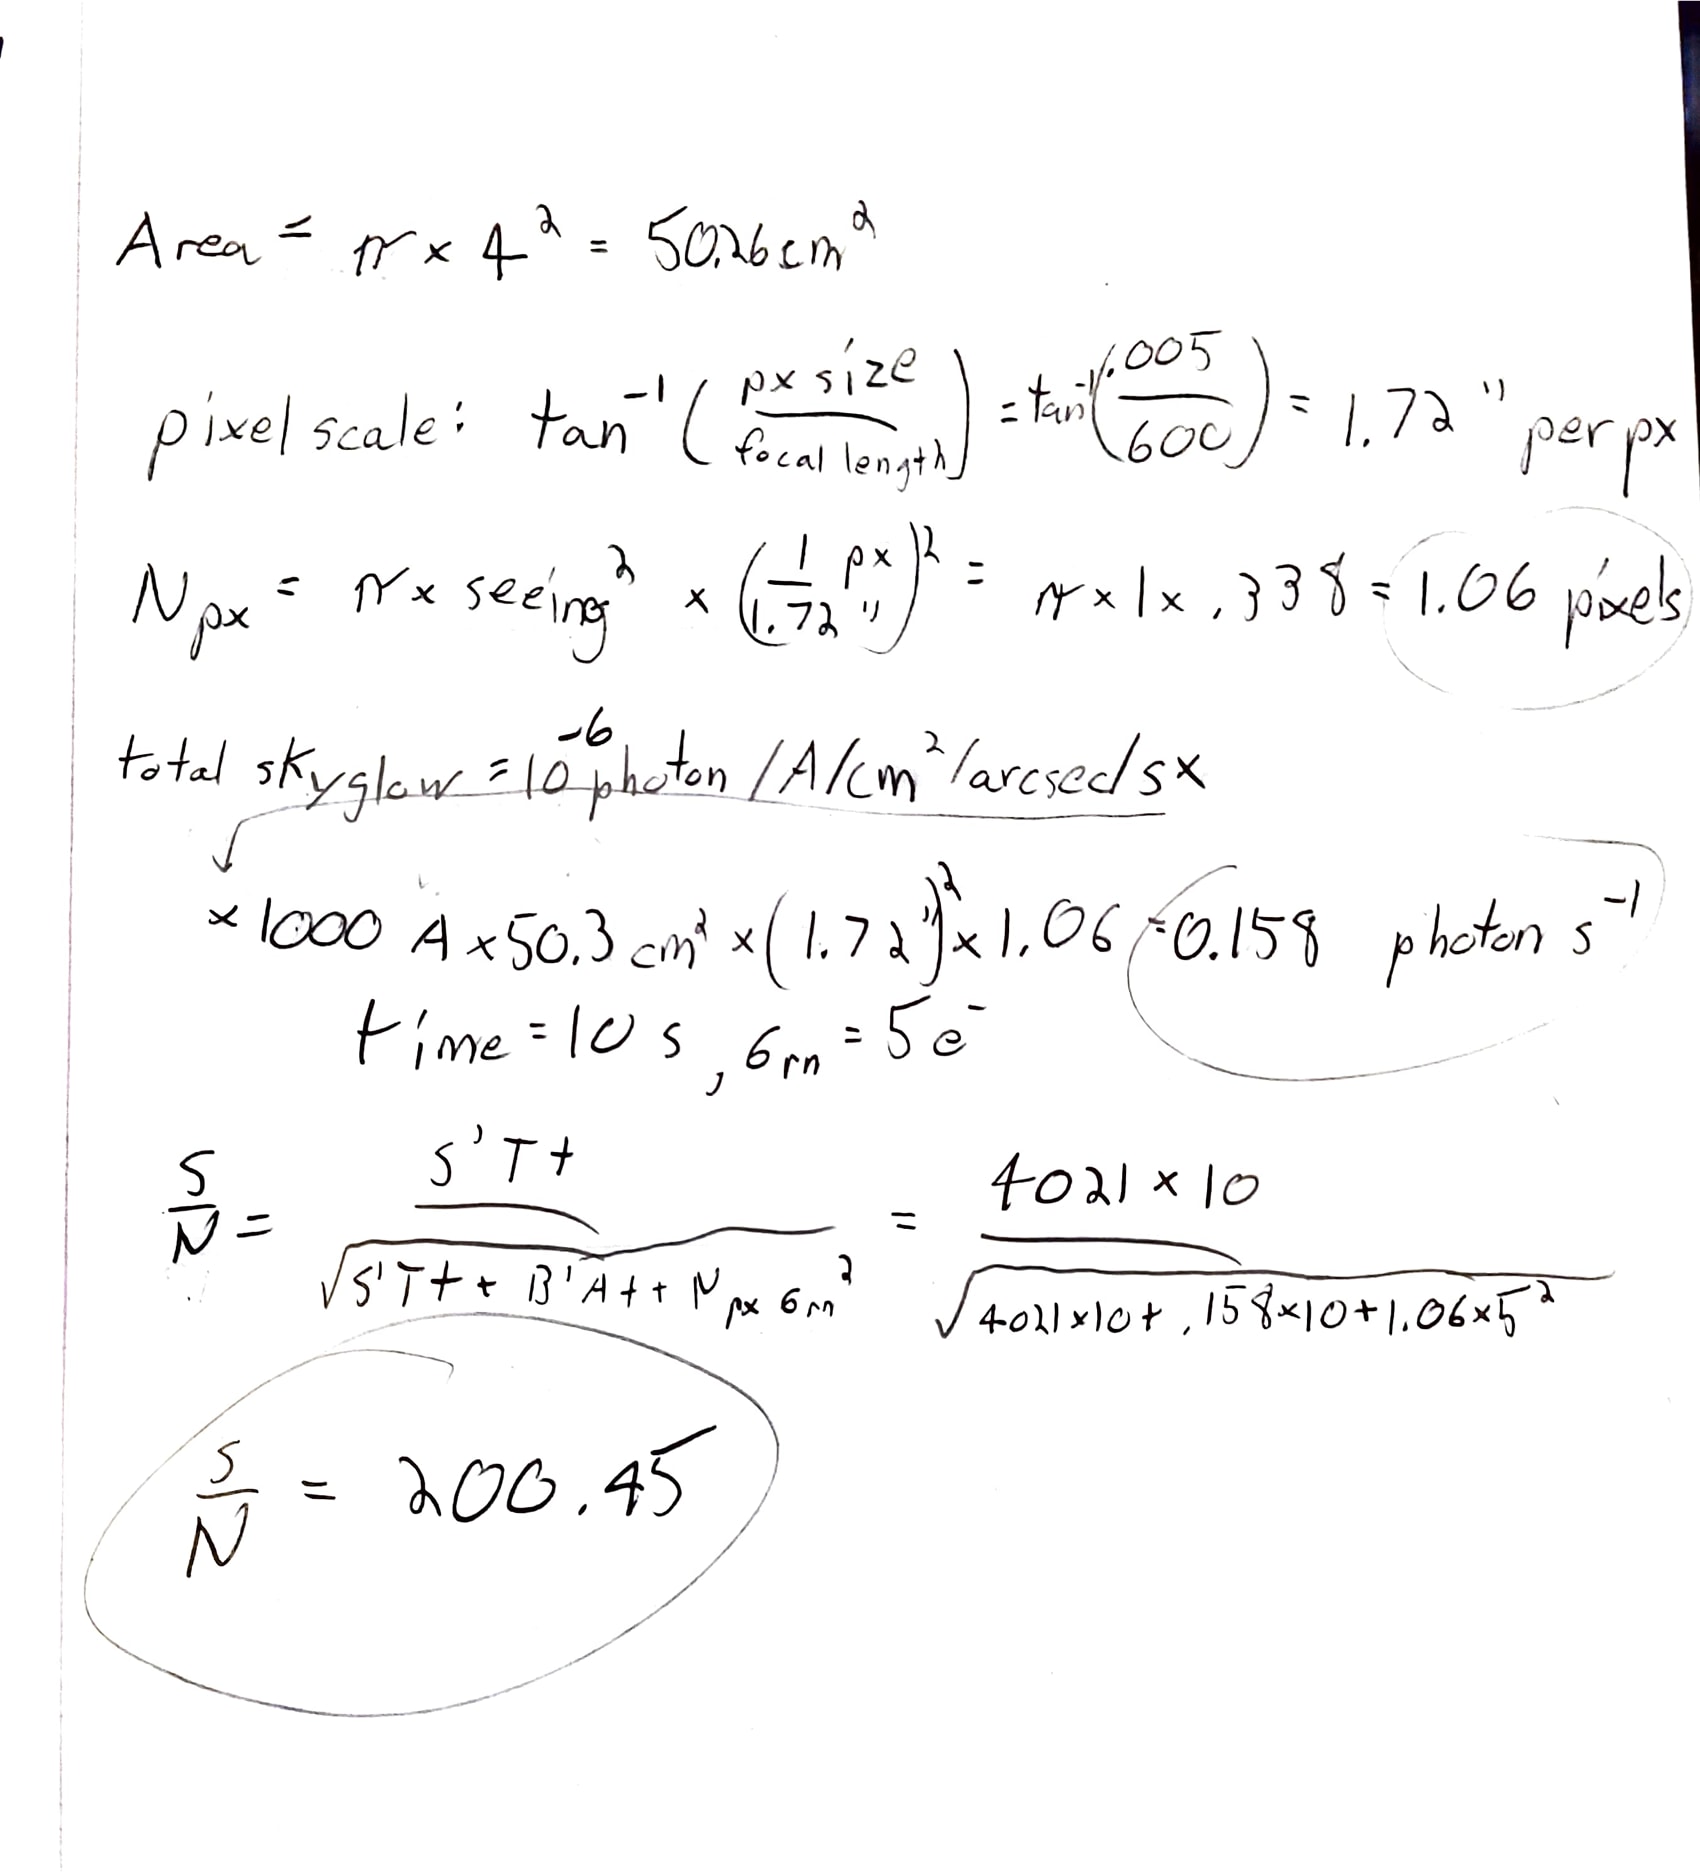 Area = π x 4² = 50.26cm²
pixel scale: tan⁻¹ (px size / focal length) = tan⁻¹(.005 / 600) = 1.72" per px
Npx = π x seeing² x (1 px / 1.72")² = π x 1 x .338 = 1.06 pixels
total skyglow = 10⁻⁶ photon /A/cm²/arcsec/s x
x 1000 A x 50.3 cm² x (1.72")² x 1.06 = 0.158 photon s⁻¹
time = 10 s, σrn = 5 e⁻
S/N = S'Tt / √(S'Tt + B'At + Npx σrn²) = 4021 x 10 / √(4021x10 + .158x10 + 1.06x5²)
S/N = 200.45